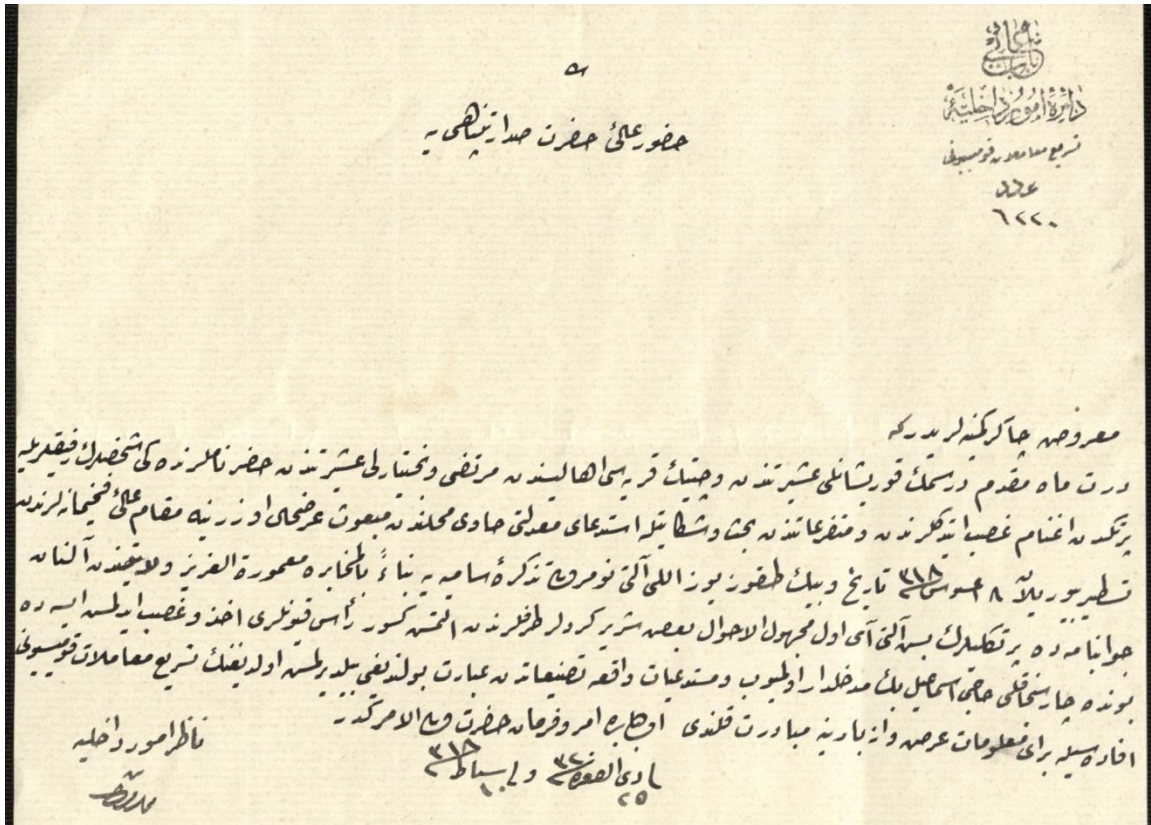 باب عالی
دائرهٔ امور داخلیه
تسریع معاملات قومیسیونی
عدد
٦٢٢٠
حضور عالیٔ حضرت صدارتپناهی یه
معروض چاکر کمینه لریدر که
درت ماه مقدم درسمك قوریشانلی عشیرتندن و چتیك قریه سی اهالیسندن مرتضی و بختیارلی عشیرتندن حضر ناملرنده کی شخصلرك رفیقلریله
پرتکدن اغنام غصب ایتدکلرندن و متفرعاتندن بحث و شکایتله استدعای معدلتی حاوی محلندن مبعوث عرضحال اوزرینه مقام عالیٔ فخیمانه لرندن
تسطیر بیوریلان ٨ اغستوس ٣١٨ تاریخ و بیك طقوز یوز اللی آلتی نومرولی تذکرهٔ سامیه یه بناءً بالمخابره معمورة العزیز ولایتندن آلنان
جوابنامه ده پرتکلیلرك بش آلتی آی اول مجهول الاحوال بعض شریر کردلر طرفلرندن التمش کسور رأس قیونلری اخذ و غصب ایدلمش ایسه ده
بونده چارسنجاقلی حاجی اسماعیل بك مدخلدار اولمیوب و مستدعیات واقعه تصنیعاتدن عبارت بولندیغی بیلدیرلمش اولدیغنك تسریع معاملات قومیسیونی
افاده سیله برای معلومات عرض و ازبارینه مبادرت قلندی اولبابده امر و فرمان حضرت ولی الامرکدر
ناظر امور داخلیه